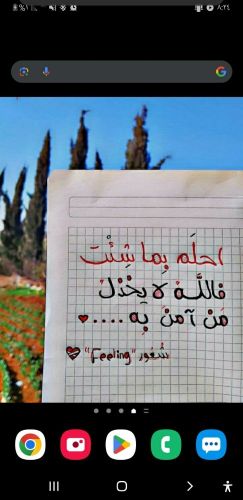 ٨:٢٤
احلَم بِما شِئْت
فاللَّه لا يخْذل
مَن آمنْ بِه ....
شُعور "Feeling"